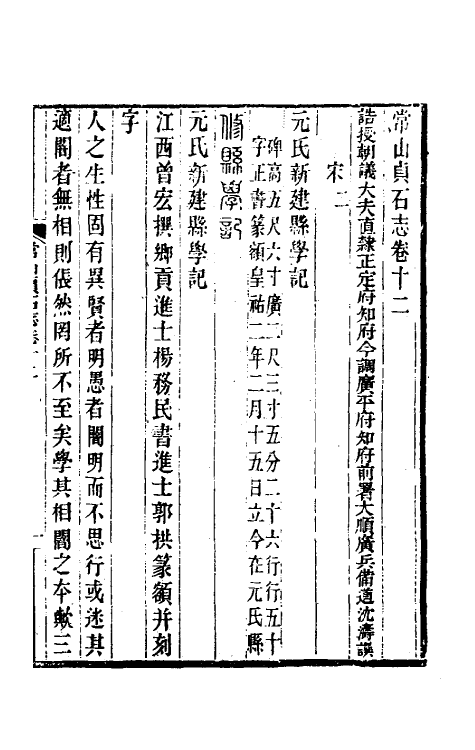 常山貞石志卷十二
誥授朝議大夫直隸正定府知府今調廣平府知府前署大順廣兵備道沈濤譔
宋二
元氏新建縣學記
碑高五尺六寸廣二尺三寸五分二十六行行五十
字正書篆額皇祐二年二月十五日立今在元氏縣
修縣學記
元氏新建縣學記
江西曾宏撰鄉貢進士楊務民書進士郭栱篆額并刻
字
人之生性固有異賢者明愚者闇明而不思行或迷其
適闇者無相則倀然罔所不至矣學其相闇之本歟三